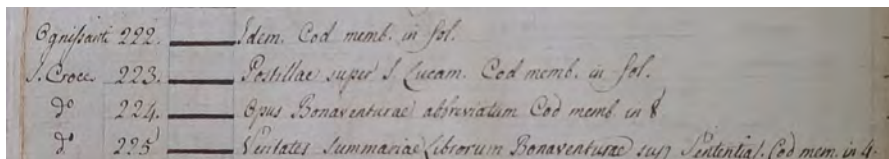 Ognissanti 222. Idem. Cod memb. in fol.
S. Croce 223. Postillae super S. Lucam. Cod memb. in fol.
do 224. Opus Bonaventurae abbreviatum Cod memb. in 8
do 225 Veritates Summariae Librorum Bonaventurae sup Sententias. Cod mem. in 4.